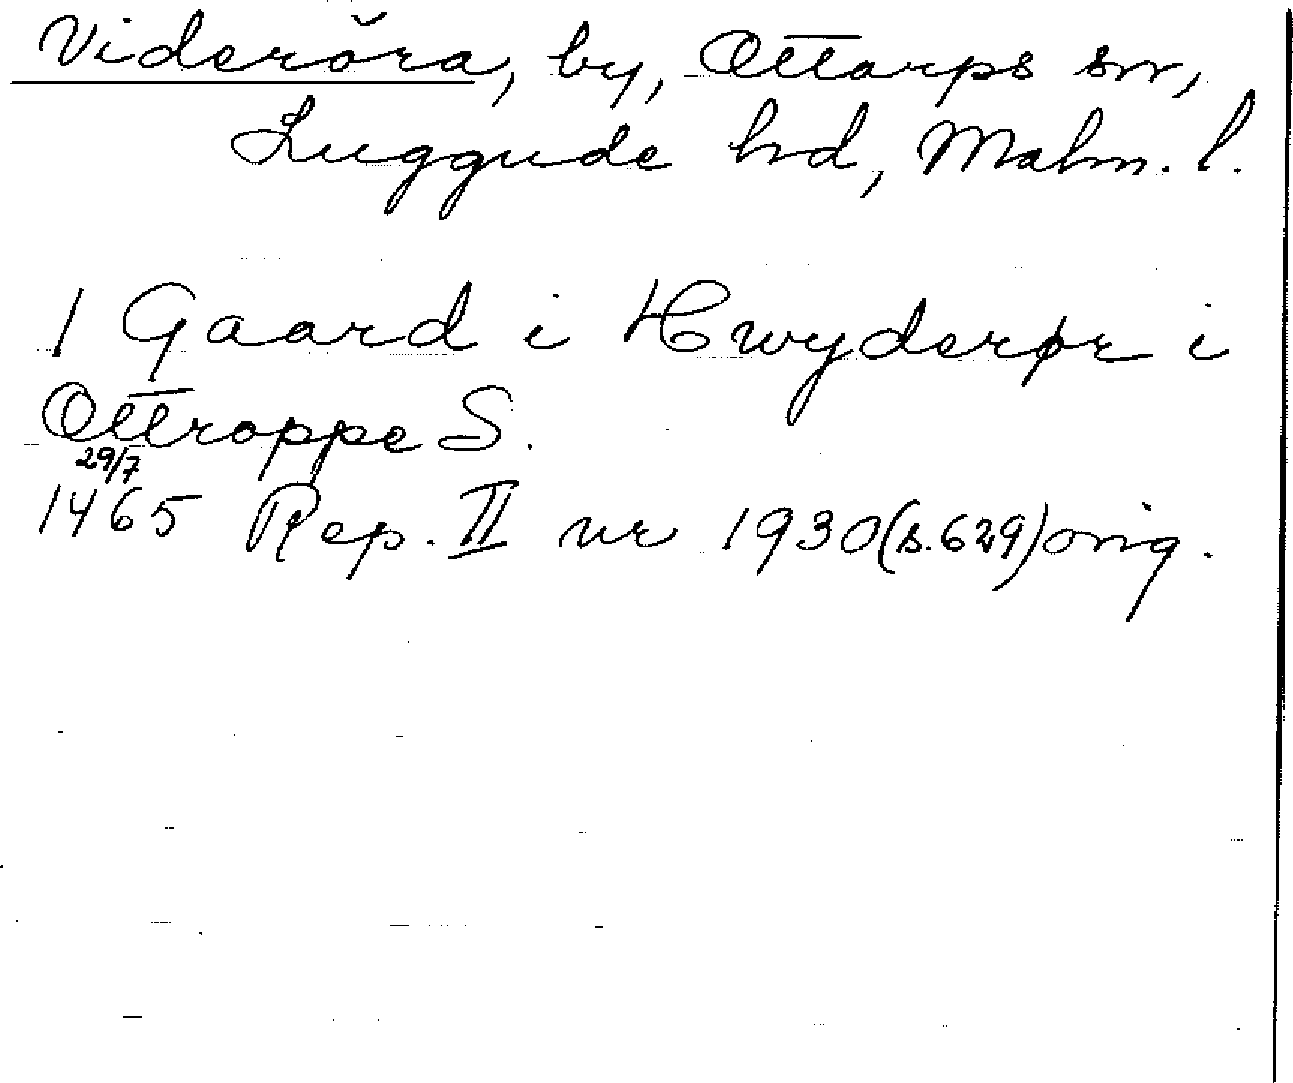 Videröra, by, Ottarps sn,
Luggude hd, Malm. l.
1 Gaard i Hwyderør i
Ottroppe S.
29/7
1465 Rep. II nr 1930(s.629)orig.